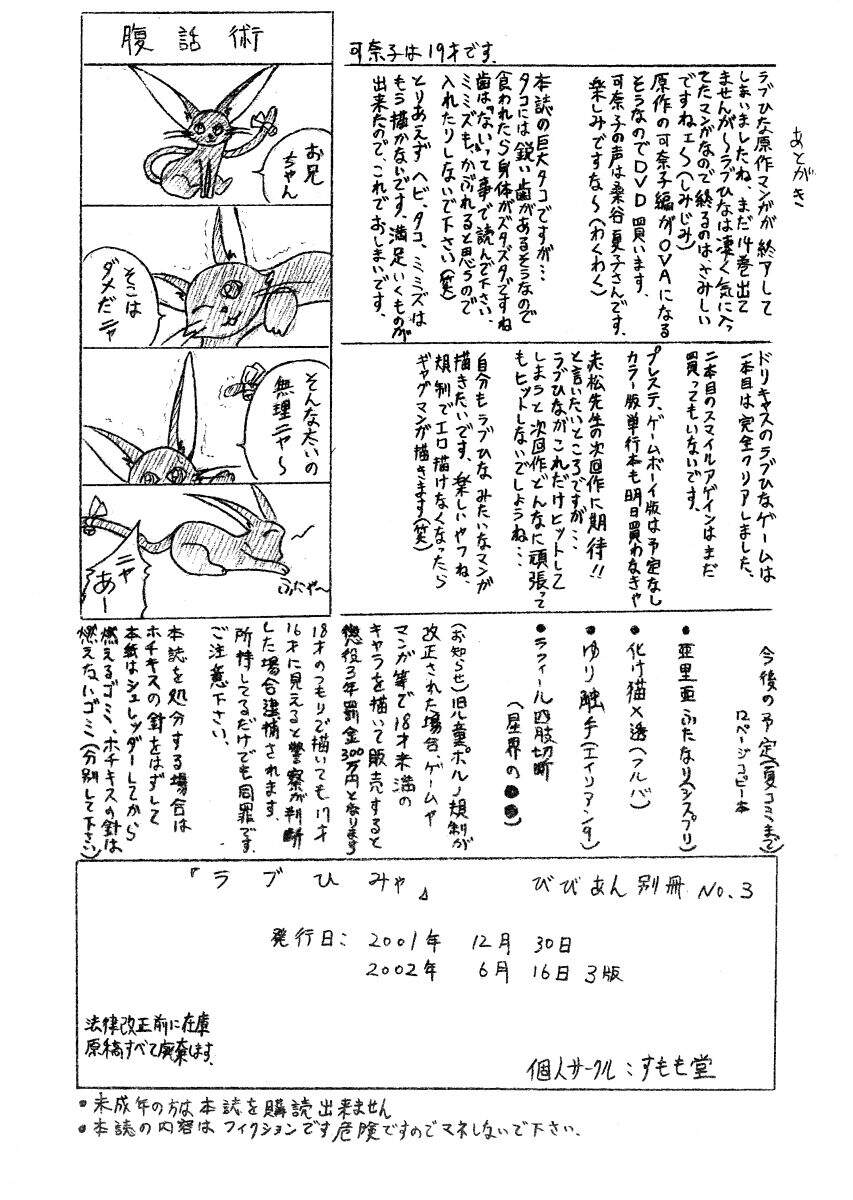 あとがき
可奈子は19才です。
ラブひな原作マンガが終了して
しまいましたね、まだ14巻出て
ませんが～ラブひなは凄く気に入っ
てたマンガなので終るのは、さみしい
ですねェ～(しみじみ)
原作の可奈子編がOVAになる
そうなのでDVD買います、
可奈子の声は桑谷夏子さんです、
楽しみですな～(わくわく)
本誌の巨大タコですが…
タコには鋭い歯があるそうなので
食われたら身体がズタズタですね
歯は「ない」って事で読んで下さい、
ミミズも、かぶれると思うので
入れたりしないで下さい(笑)
とりあえずヘビ、タコ、ミミズは
もう描かないです、満足いくものが
出来たので、これでおしまいです、
ドリキャスのラブひなゲームは
一本目は完全クリアしました、
二本目のスマイルアゲインはまだ
買ってもいないです、
プレステ、ゲームボーイ版は予定なし
カラー版単行本も明日買わなきゃ
赤松先生の次回作に期待!!
と言いたいところですが…
ラブひながこれだけヒットして
しまうと次回作どんなに頑張って
もヒットしないでしょうね…
自分もラブひなみたいなマンガ
描きたいです、楽しいやつね、
規制でエロ描けなくなったら
ギャグマンガ描きます(笑)
今後の予定(夏コミまで)
12ページコピー本
●亜里亜ふたなり(シスプリ)
●化け猫×透(フルバ)
●ゆり触手(エイリアン9)
●ラフィール四肢切断
(星界の●●)
(お知らせ)旧「児童ポルノ」規制が
改正された場合、ゲームや
マンガ等で18才未満の
キャラを描いて販売すると
懲役3年罰金300万円となります
18才のつもりで描いても17才
16才に見えると警察が判断
した場合逮捕されます、
所持してるだけでも同罪です、
ご注意下さい、
本誌を処分する場合は
ホチキスの針をはずして
本紙はシュレッダーしてから
燃えるゴミ、ホチキスの針は
燃えないゴミ(分別して下さい)
腹話術
お兄
ちゃん
そこは
ダメだニャ
そんな太いの
無理ニャ～
ニャ
あー
ふにゃ～
『ラブひみゃ』 びびあん別冊 No.3
発行日: 2001年 12月 30日
2002年 6月 16日 3版
法律改正前に在庫
原稿すべて廃棄します、
個人サークル:すもも堂
●未成年の方は本誌を購読出来ません
●本誌の内容はフィクションです危険ですのでマネしないで下さい、